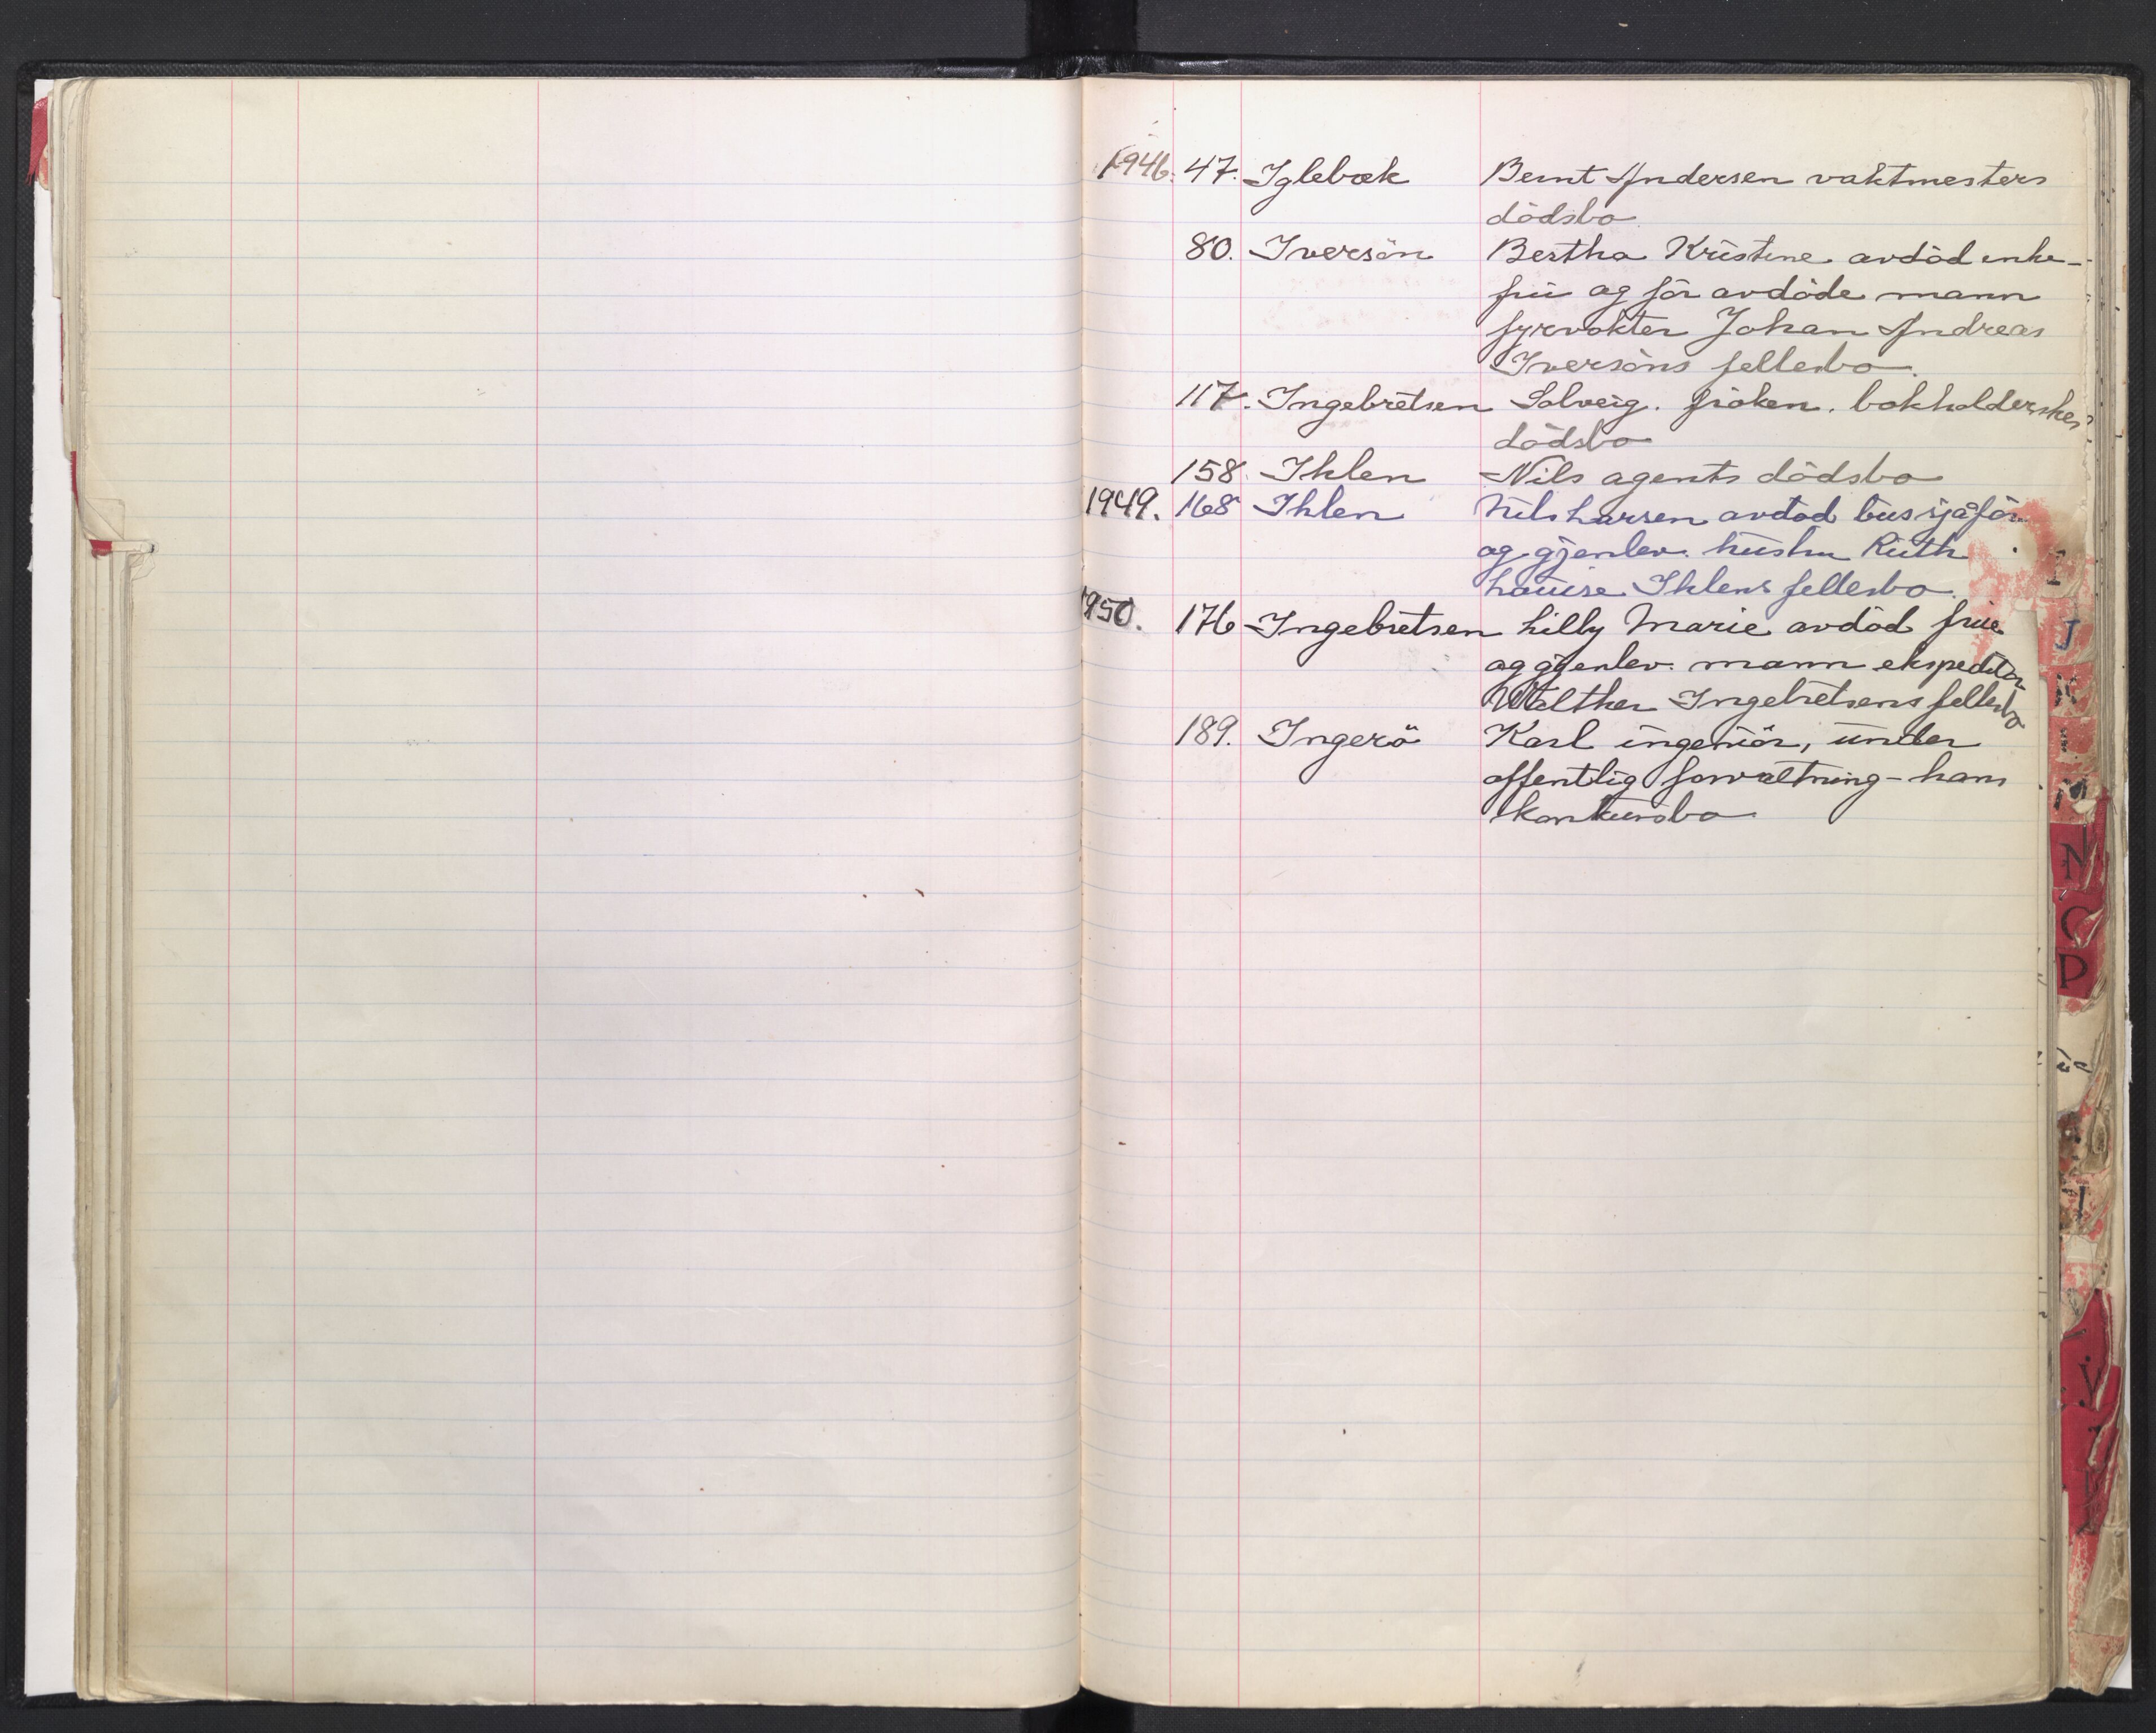 1946. 47. Iglebæk Bernt Andersen vaktmesters
dödsbo
80. Iversön Bertha Kristine avdöd enke-
frü og för avdöde mann
fyrvokter Johan Andreas
Iversöns fellesbo.
117. Ingebretsen Solveig. fröken. bokholderskes
dödsbo
158 Ihlen Nils agents dödsbo
1949. 168 Ihlen Nils Larsen avdöd bussjåför
og gjenlev. hüstru Rüth
Loüise Ihlens fellesbo.
1950. 176 Ingebretsen Lilly Marie avdöd frue
og gjenlev. mann ekspeditör
Walther Ingebretsens fellesbo
189. Ingerö Karl ingeniör, ünder
offentlig forvaltning - hans
konkursbo
I
J
K
L
M
N
O
P
V